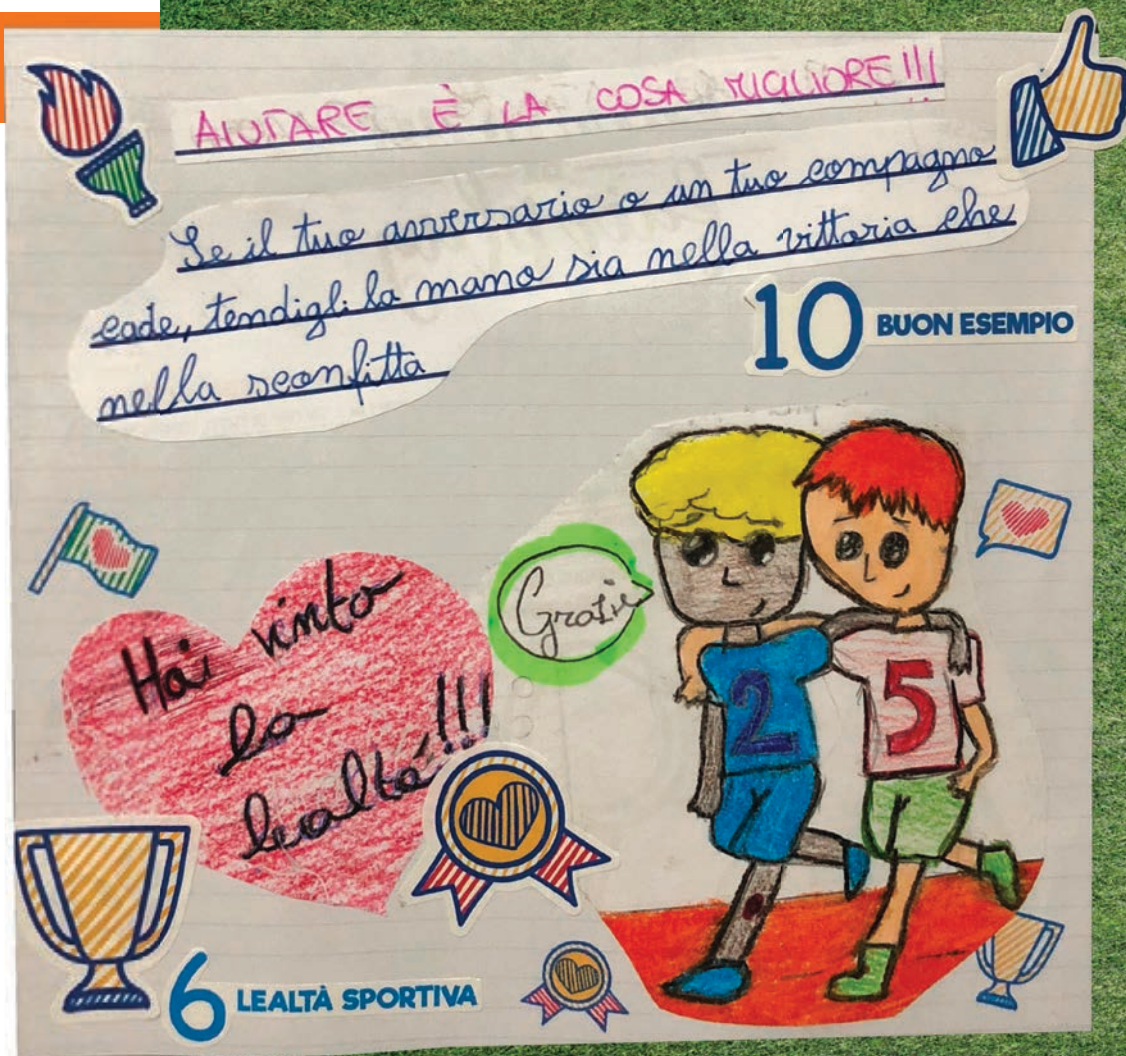 AIUTARE È LA COSA MIGLIORE!!!
Se il tuo avversario o un tuo compagno
cade, tendigli la mano sia nella vittoria che
nella sconfitta
10 BUON ESEMPIO
Grazie
Hai vinto
la
lealtá!!!
2
5
6 LEALTÀ SPORTIVA